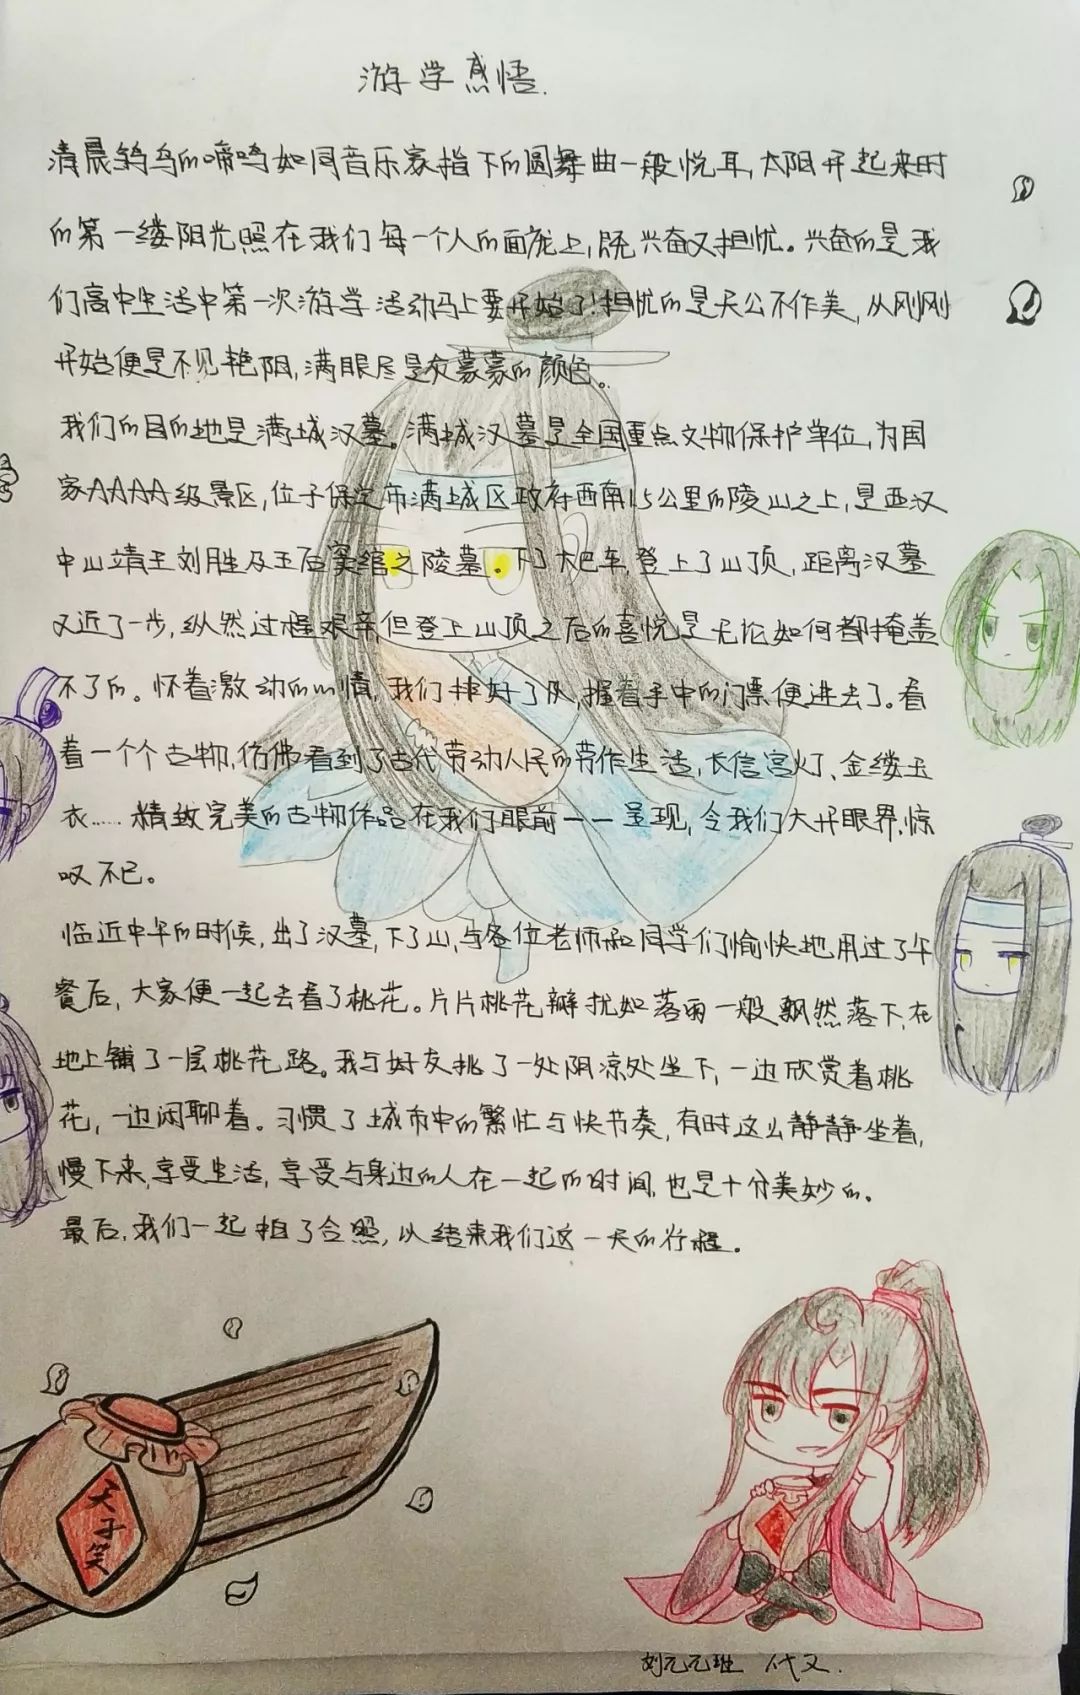 游学感悟.
清晨鸽鸟的啼鸣如同音乐家指下的圆舞曲一般悦耳,太阳升起来时
的第一缕阳光照在我们每一个人的面庞上,既兴奋又担忧。兴奋的是我
们高中生活中第一次游学活动马上要开始了!担忧的是天公不作美,从刚刚
开始便是不见艳阳,满眼尽是灰蒙蒙的颜色。
我们的目的地是满城汉墓。满城汉墓是全国重点文物保护单位,为国
家AAAA级景区,位于保定市满城区政府西南1.5公里的陵山之上,是西汉
中山靖王刘胜及王后窦绾之陵墓。下了大巴车,登上了山顶,距离汉墓
又近了一步,纵然过程艰辛但登上山顶之后的喜悦是无论如何都掩盖
不了的。怀着激动的心情,我们排好了队,握着手中的门票便进去了。看
着一个个古物,仿佛看到了古代劳动人民的劳作生活,长信宫灯、金缕玉
衣……精致完美的古物作品在我们眼前一一呈现,令我们大开眼界,惊
叹不已。
临近中午的时候,出了汉墓,下了山,与各位老师和同学们愉快地用过了午
餐后,大家便一起去看了桃花。片片桃花瓣犹如落雨一般飘然落下,在
地上铺了一层桃花路。我与好友挑了一处阴凉处坐下,一边欣赏着桃
花,一边闲聊着。习惯了城市中的繁忙与快节奏,有时这么静静坐着,
慢下来,享受生活,享受与身边的人在一起的时间,也是十分美妙的。
最后,我们一起拍了合照,以结束我们这一天的行程。
天子笑
刘元元班 代又.